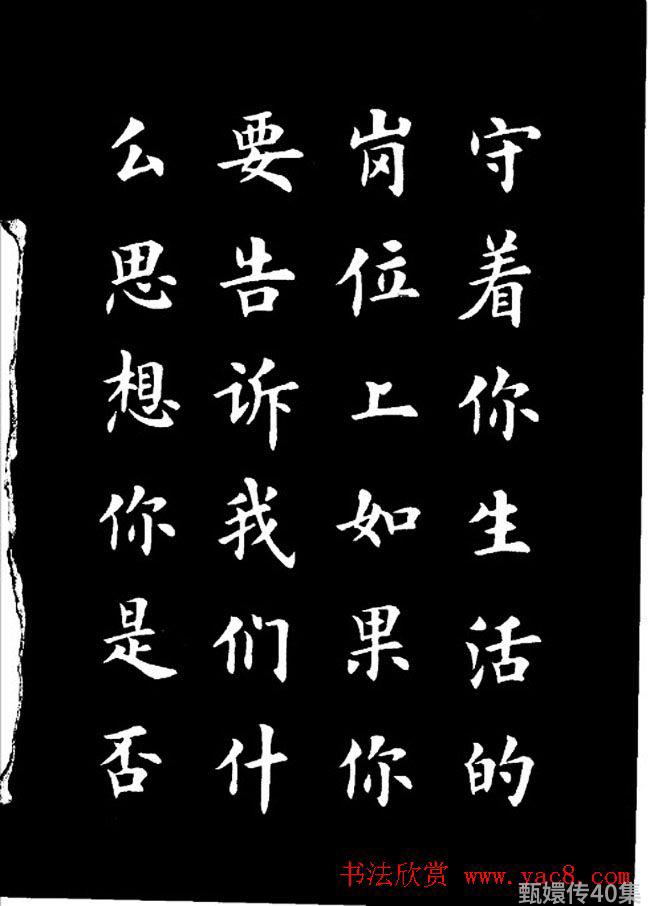 守着你生活的
岗位上如果你
要告诉我们什
么思想你是否
书法欣赏 www.yac8.com
甄嬛传40集